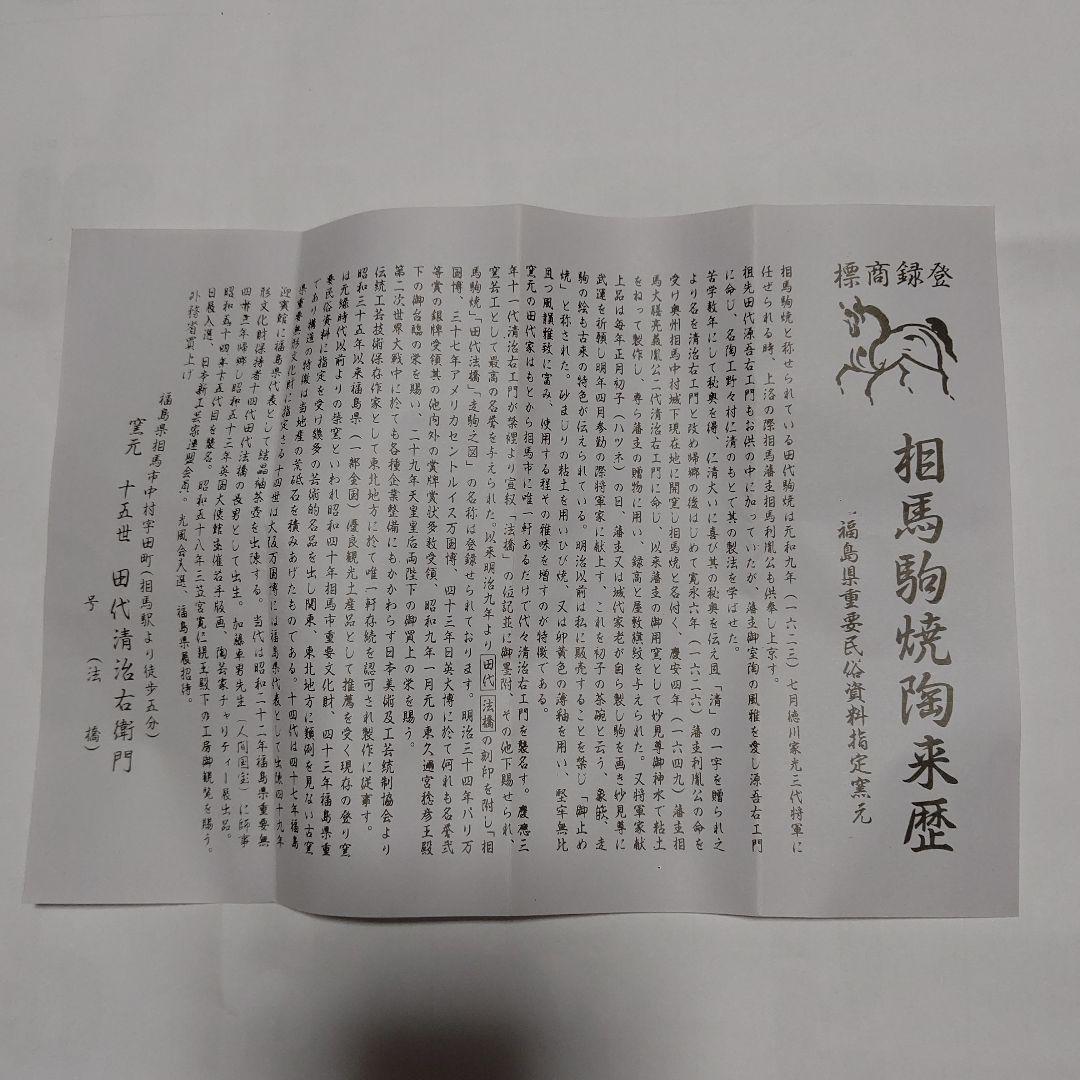 登録商標
相馬駒焼陶来歴
福島県重要民俗資料指定窯元
相馬駒焼と称せられている田代駒焼は元和九年(一六二三)七月徳川家光三代将軍に
任ぜられる時、上洛の際相馬藩主相馬利胤公も供奉し上京す。
祖先田代源吾右エ門もお供の中に加っていたが 藩主御室陶の風雅を愛し源吾右エ門
に命じ、名陶工野々村仁清のもとで其の製法を学ばせた。
苦学数年にして秘奥を得、仁清大いに喜び其の秘奥を伝え且「清」の一字を贈られ之
より名を清治右エ門と改め帰郷の後はじめて寛永六年(一六二六)藩主利胤公の命を
受け奥州相馬中村城下現在地に開窯し相馬焼と名付く、慶安四年(一六四九)藩主相
馬大膳亮義胤公二代清治右エ門に命じ、以来藩主の御用窯として妙見尊御神水で粘土
をねって製作し、専ら藩主の贈物に用い、録高と屋敷旗紋を与えられた。又将軍家献
上品は毎年正月初子(ハツネ)の日、藩主又は城代家老が自ら製し駒を画き妙見尊に
武運を祈願し明年四月参勤の際将軍家に献上す、これを初子の茶碗と云う、象嵌、走
駒の絵も古来の特色が伝えられている。明治以前は私に販売することを禁じ「御止め
焼」と称された。砂まじりの粘土を用いひび焼、又は卯黄色の薄釉を用い、堅牢無比
且つ風韻雅致に富み、使用する程その雅味を増すのが特徴である。
窯元の田代家はもとから相馬市に唯一軒あるだけで代々清治右エ門を襲名す。慶應三
年十一代清治右エ門が禁裡より宣奴「法橋」の位記並に御墨附、その他下賜せられ、
窯芸工として最高の名誉を与えられた。以来明治九年より田代法橋の刻印を附し「相
馬駒焼」「田代法橋」「走駒之図」の名称は登録せられております。明治三十四年パリ万
国博、三十七年アメリカセントルイス万国博、四十三年日英大博に於て何れも名誉弐
等賞の銀牌受領其の他内外の賞牌賞状多数受領、昭和九年一月元の東久邇宮稔彦王殿
下の御台臨の栄を賜い、二十九年天皇皇后両陛下の御買上の栄を賜う。
第二次世界大戦中に於ても各種企業整備にもかかわらず日本美術及工芸統制協会より
伝統工芸技術保存作家として東北地方に於て唯一軒存続を認可され製作に従事す。
昭和三十五年以来福島県(一部全国)優良観光土産品として推薦を受く現存の登り窯
は元緑時代以前よりの築窯といわれ昭和四十年相馬市重要文化財、四十三年福島県重
要民俗資料に指定を受け幾多の芸術的名品を出し関東、東北地方に類例を見ない古窯
であり構造の特徴は当地産の荒砥石を積みあげたものである。十四代は四十七年福島
県重要無形文化財に指定さる十四世は大阪万国博には福島県代表として出陳四十九年
迎賓館に福島県代表として結晶釉茶壺を出陳する。当代は昭和二十二年福島県重要無
形文化財保持者十四代田代法橋の長男として出生。加藤卓男先生(人間国宝)に師事
四廿三年帰郷し昭和五十三年英国大使館主催若手版画、陶芸家チャリティー展出品。
昭和五十四年十五代目を襲名。昭和五十八年三笠宮寛仁親王殿下の工房御観覧を賜う。
日展入選、日本新工芸家連盟会員。光風会入選、福島県展招待。
外務省買上げ
福島県相馬市中村字田町(相馬駅より徒歩五分)
窯元 十五世 田代清治右衛門
号(法橋)